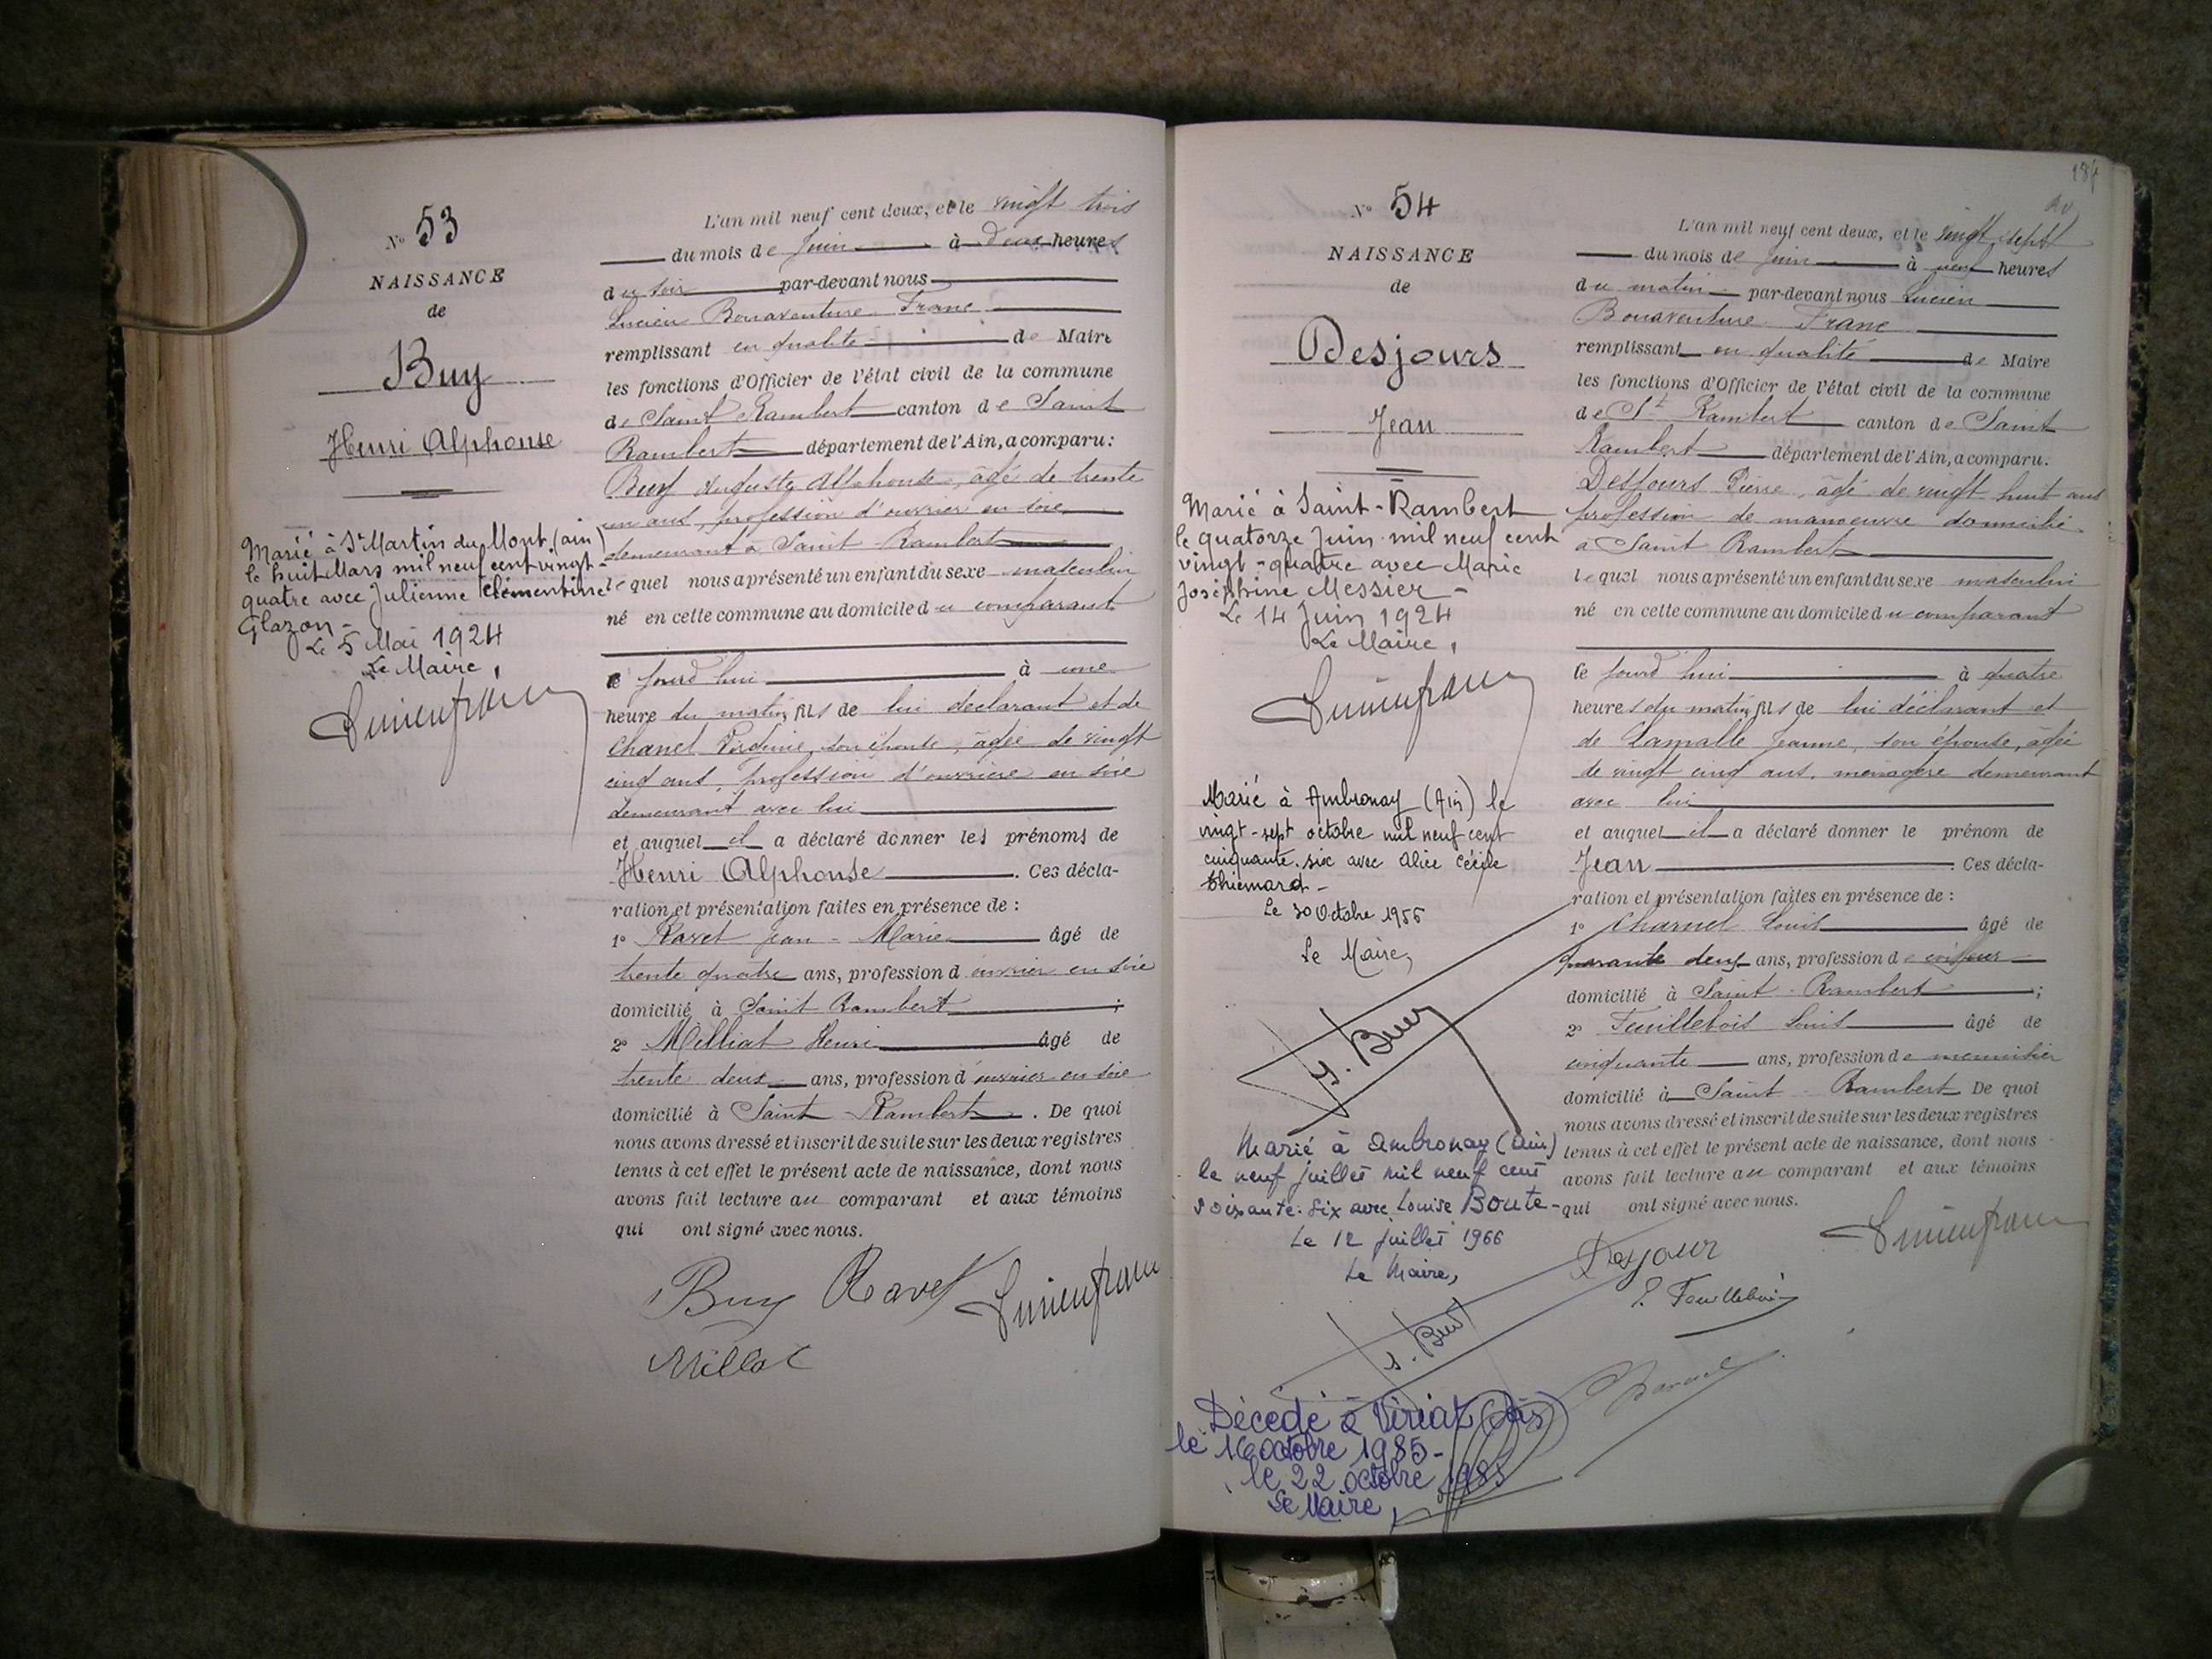 N° 53
NAISSANCE
de
Buy
Henri Alphonse
Marié à St Martin du Mont (ain)
le huit Mars mil neuf cent vingt-
quatre avec Julienne Clémentine
Glazon -
Le 5 Mai 1924
Le Maire,
L'an mil neuf cent deux, et le vingt trois
du mois de Juin à deux heures
du soir par-devant nous
Lucien Bonaventure Franc
remplissant en qualité de Maire
les fonctions d'Officier de l'état civil de la commune
de Saint Rambert canton de Saint
Rambert département de l'Ain, a comparu:
Buy Auguste Alphonse, âgé de trente
un ans, profession d'ouvrier en soie
demeurant à Saint Rambert
lequel nous a présenté un enfant du sexe masculin
né en cette commune au domicile du comparant
ce jourd'hui à une
heure du matin, fils de lui déclarant et de
Chanel, son épouse, âgée de vingt
cinq ans, profession d'ouvrière en soie
demeurant avec lui
et auquel il a déclaré donner les prénoms de
Henri Alphonse. Ces décla-
ration et présentation faites en présence de :
1° Ravet Jean-Marie âgé de
trente quatre ans, profession d'ouvrier en soie
domicilié à Saint Rambert ;
2° Melliat Henri âgé de
trente deux ans, profession d'ouvrier en soie
domicilié à Saint Rambert. De quoi
nous avons dressé et inscrit de suite sur les deux registres
tenus à cet effet le présent acte de naissance, dont nous
avons fait lecture au comparant et aux témoins
qui ont signé avec nous.
Buy Ravet Lucien franc
N° 54
NAISSANCE
de
Desjours
Jean
Marié à Saint-Rambert
le quatorze Juin mil neuf cent
vingt-quatre avec Marie
Joséphine Messier -
Le 14 Juin 1924
Le Maire,
Lucien franc
Marié à Ambronay (Ain) le
vingt-sept octobre mil neuf cent
cinquante-six avec Alice Cécile
Thiemard -
Le 30 Octobre 1956
Le Maire,
Marié à Ambronay (Ain)
le neuf juillet mil neuf cent
soixante-six avec Louise Boute -
Le 12 juillet 1966
Le Maire,
Décédé à Viriat (Ain)
le 16 octobre 1985 -
le 22 octobre 1985
Le Maire,
L'an mil neuf cent deux, et le vingt sept
du mois de Juin à neuf heures
du matin par-devant nous Lucien
Bonaventure Franc
remplissant en qualité de Maire
les fonctions d'Officier de l'état civil de la commune
de St Rambert canton de Saint
Rambert département de l'Ain, a comparu.
Desjours Pierre, âgé de vingt huit ans
profession de manoeuvre domicilié
à Saint Rambert
lequel nous a présenté un enfant du sexe masculin
né en cette commune au domicile du comparant
ce jourd'hui à quatre
heures du matin, fils de lui déclarant et
de Lamalle Jeanne, son épouse, âgée
de vingt cinq ans, ménagère demeurant
avec lui
et auquel il a déclaré donner le prénom de
Jean. Ces décla-
ration et présentation faites en présence de :
1° Charnel Louis âgé de
quarante deux ans, profession de coiffeur
domicilié à Saint-Rambert ;
2° Feuillebois Louis âgé de
cinquante ans, profession de menuisier
domicilié à Saint-Rambert De quoi
nous avons dressé et inscrit de suite sur les deux registres
tenus à cet effet le présent acte de naissance, dont nous
avons fait lecture au comparant et aux témoins
qui ont signé avec nous.
Desjour Lucien franc